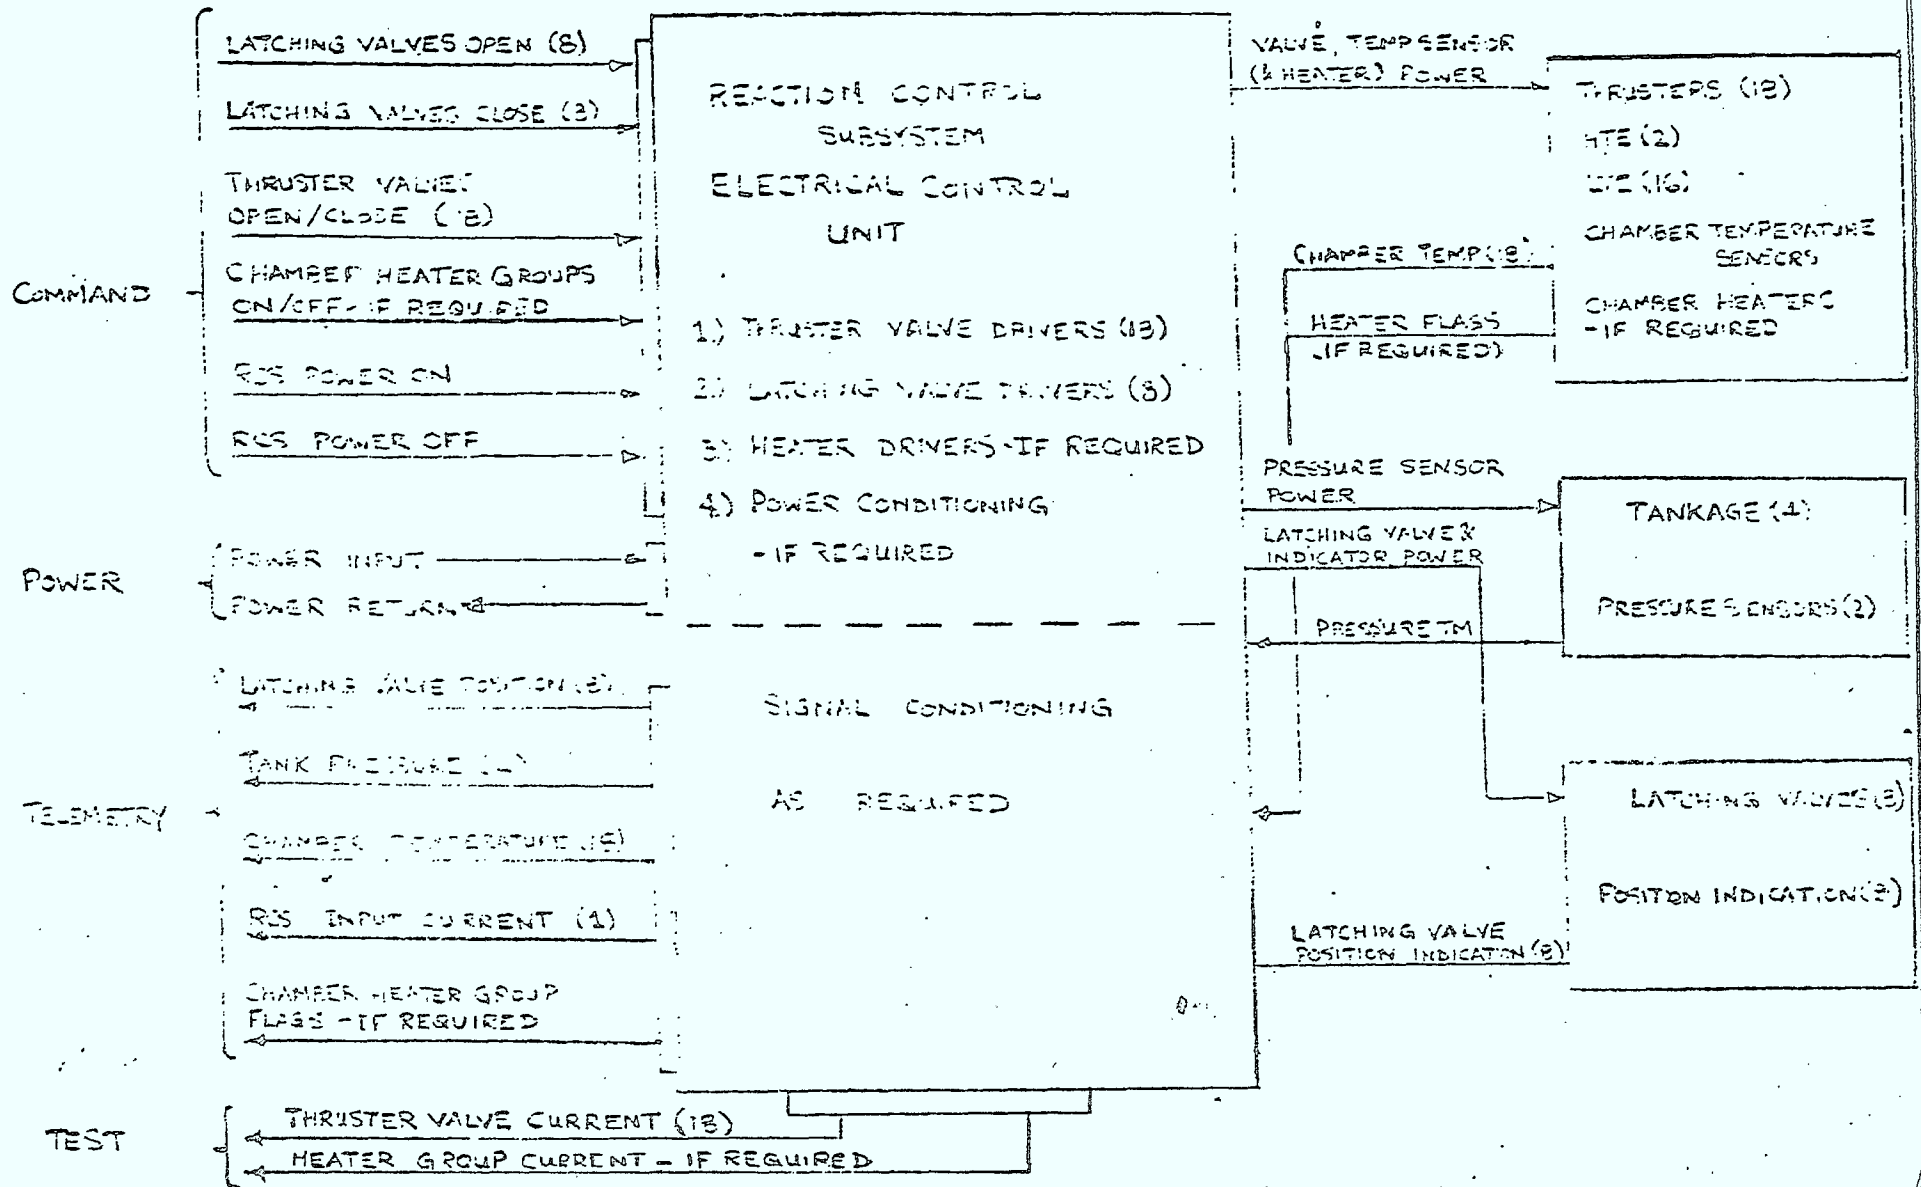 COMMAND
LATCHING VALVES OPEN (8)
LATCHING VALVES CLOSE (8)
THRUSTER VALVES
OPEN/CLOSE (18)
CHAMBER HEATER GROUPS
ON/OFF - IF REQUIRED
RCS POWER ON
RCS POWER OFF
POWER
POWER INPUT
POWER RETURN
TELEMETRY
LATCHING VALVE POSITION (8)
TANK PRESSURE
CHAMBER TEMPERATURE (18)
RCS INPUT CURRENT (1)
CHAMBER HEATER GROUP
FLAGS - IF REQUIRED
TEST
THRUSTER VALVE CURRENT (18)
HEATER GROUP CURRENT - IF REQUIRED
REACTION CONTROL
SUBSYSTEM
ELECTRICAL CONTROL
UNIT
1.) THRUSTER VALVE DRIVERS (18)
2.) LATCHING VALVE DRIVERS (8)
3.) HEATER DRIVERS - IF REQUIRED
4.) POWER CONDITIONING
- IF REQUIRED
SIGNAL CONDITIONING
AS REQUIRED
VALVE, TEMP SENSOR
(& HEATER) POWER
CHAMBER TEMP (18)
HEATER FLAGS
(IF REQUIRED)
PRESSURE SENSOR
POWER
LATCHING VALVE &
INDICATOR POWER
PRESSURE TM
LATCHING VALVE
POSITION INDICATION (8)
THRUSTERS (18)
HTE (2)
LTE (16)
CHAMBER TEMPERATURE
SENSORS
CHAMBER HEATERS
- IF REQUIRED
TANKAGE
PRESSURE SENSORS (2)
LATCHING VALVES (8)
POSITION INDICATION (8)